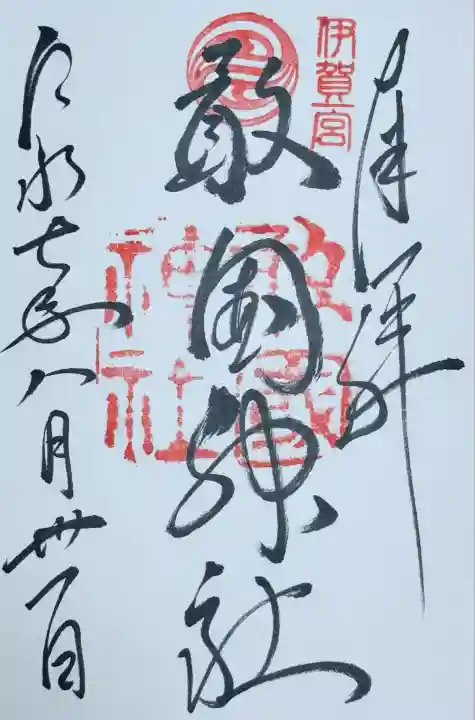 奉拝
伊賀宮
敢國神社
敢國神社
令和七年八月卅一日